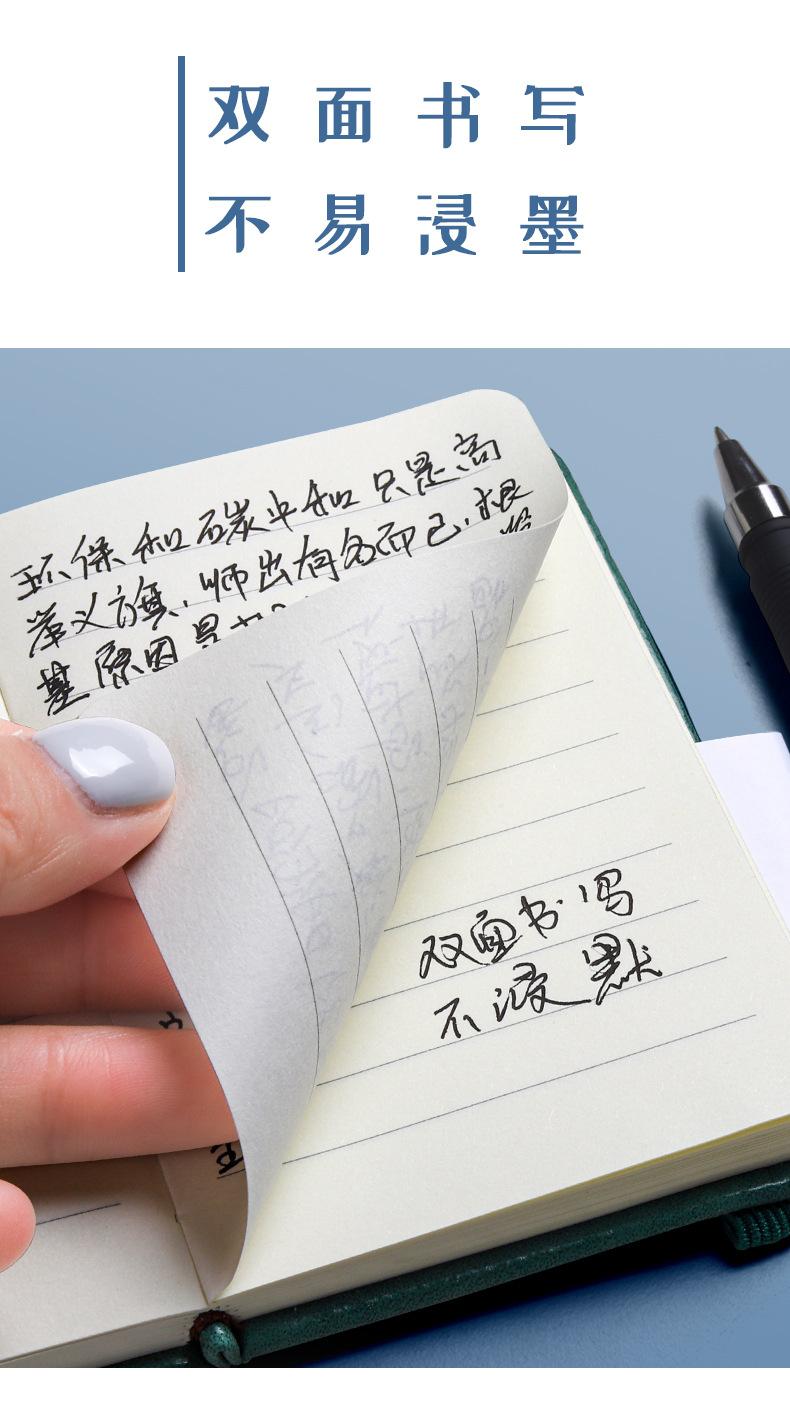 双面书写
不易浸墨
环保和碳中和只是高
举义旗,师出有名而已.根
基原因是
双面书写
不浸默